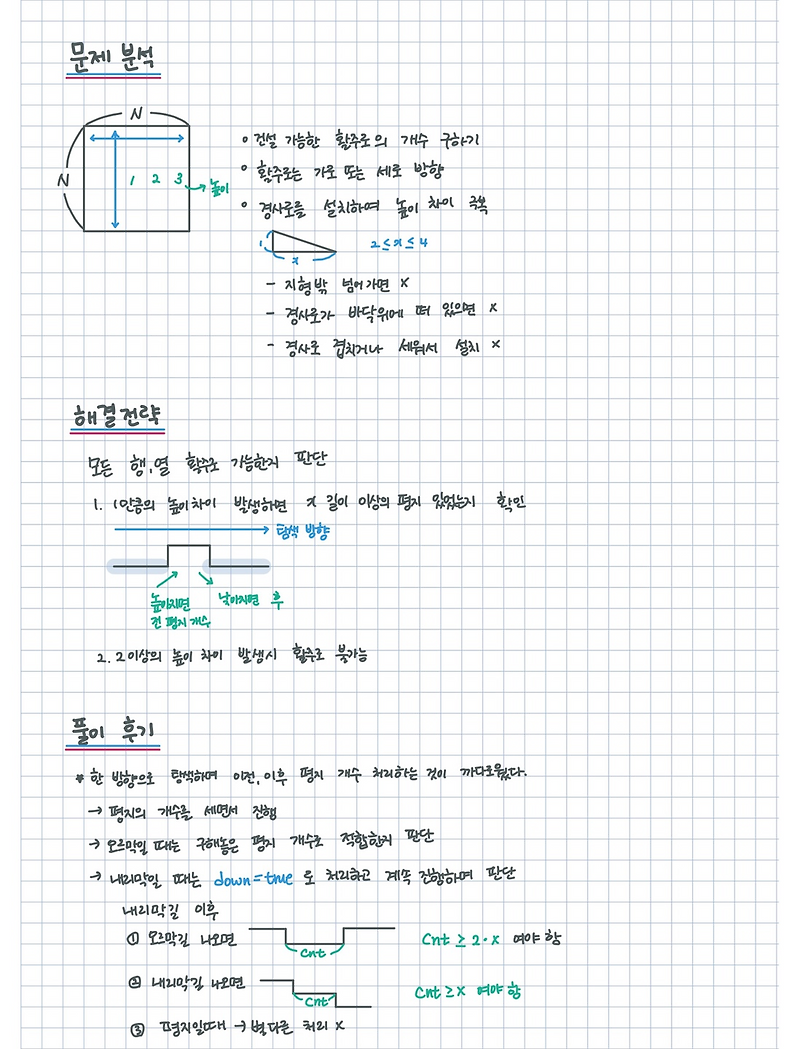 문제 분석
N
N
1 2 3 → 높이
• 건설 가능한 활주로의 개수 구하기
• 활주로는 가로 또는 세로 방향
• 경사로를 설치하여 높이 차이 극복
1
x
2 ≤ x ≤ 4
- 지형밖 넘어가면 x
- 경사로가 바닥위에 떠 있으면 x
- 경사로 겹치거나 세워서 설치 x
해결전략
모든 행,열 활주로 가능한지 판단
1. 1만큼의 높이차이 발생하면 x 길이 이상의 평지 있었는지 확인
탐색 방향
높아지면 낮아지면 후
전 평지 개수
2. 2이상의 높이 차이 발생시 활주로 불가능
풀이 후기
* 한 방향으로 탐색하며 이전, 이후 평지 개수 처리하는 것이 까다로웠다.
→ 평지의 개수를 세면서 진행
→ 오르막일 때는 구해놓은 평지 개수로 적합한지 판단
→ 내리막일 때는 down=true 로 처리하고 계속 진행하며 판단
내리막길 이후
① 오르막길 나오면 cnt Cnt ≥ 2·x 여야 함
② 내리막길 나오면 cnt Cnt ≥ x 여야 함
③ 평지일때 → 별다른 처리 x